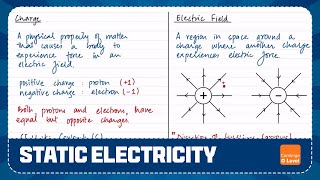 Charge
A physical property of matter
that causes a body to
experience force in an
electric field.
positive charge : proton (+1)
negative charge : electron (-1)
both proton and electron, have
equal but opposite charges.
Electric Field
A region in space around a
charge where another charge
experiences electric force.
+
-
STATIC ELECTRICITY
Cambridge
O Level